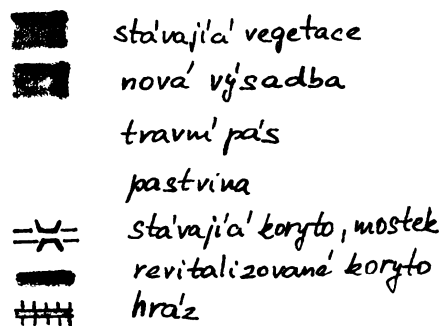 stávající vegetace
nová výsadba
travní pás
pastvina
stávající koryto, mostek
revitalizované koryto
hráz